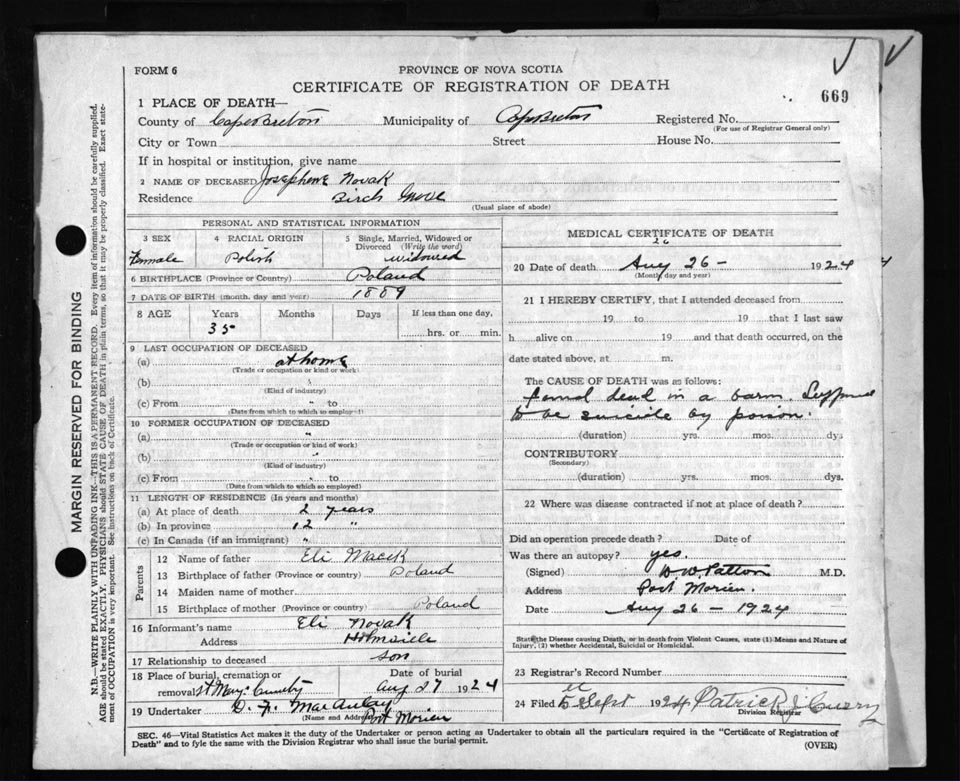 FORM 6
PROVINCE OF NOVA SCOTIA
CERTIFICATE OF REGISTRATION OF DEATH
669
1 PLACE OF DEATH—
County of Cape Breton Municipality of Cape Breton Registered No.
(For use of Registrar General only)
City or Town Street House No.
If in hospital or institution, give name
2 NAME OF DECEASED Josephene Novak
Residence Birch Grove
(Usual place of abode)
PERSONAL AND STATISTICAL INFORMATION
3 SEX 4 RACIAL ORIGIN 5 Single, Married, Widowed or Divorced (Write the word)
Female Polish widowed
6 BIRTHPLACE (Province or Country) Poland
7 DATE OF BIRTH (month, day and year) 1889
8 AGE Years Months Days If less than one day,
35 hrs. or min.
9 LAST OCCUPATION OF DECEASED
(a) at home
(Trade or occupation or kind of work)
(b)
(Kind of industry)
(c) From " to
(Date from which to which so employed)
10 FORMER OCCUPATION OF DECEASED
(a) "
(Trade or occupation or kind of work)
(b) "
(Kind of industry)
(c) From " to
(Date from which to which so employed)
11 LENGTH OF RESIDENCE (In years and months)
(a) At place of death 2 years
(b) In province 12 "
(c) In Canada (if an immigrant) "
Parents
12 Name of father Eli Macek
13 Birthplace of father (Province or country) Poland
14 Maiden name of mother
15 Birthplace of mother (Province or country) Poland
16 Informant's name Eli Novak
Address
17 Relationship to deceased son
18 Place of burial, cremation or removal St Marys Date of burial Aug 27 1924
19 Undertaker D. MacAulay
(Name and Address) Port Morien
MEDICAL CERTIFICATE OF DEATH
26
20 Date of death Aug 26 - 1924 4
(Month, day and year)
21 I HEREBY CERTIFY, that I attended deceased from
19 to 19 that I last saw
h alive on 19 and that death occurred, on the
date stated above, at m.
The CAUSE OF DEATH was as follows:
found dead in a barn. Suppose
to be suicide by poison.
(duration) yrs. mos. dys
CONTRIBUTORY
(Secondary)
(duration) yrs. mos. dys.
22 Where was disease contracted if not at place of death?
Did an operation precede death? Date of
Was there an autopsy? yes.
(Signed) W W Patton M.D.
Address Port Morien.
Date Aug 26 - 1924
State the Disease causing Death, or in death from Violent Causes, state (1) Means and Nature of
Injury, (2) whether Accidental, Suicidal or Homicidal.
23 Registrar's Record Number
24 Filed 5 Sept 1924 Patrick J
Division Registrar
SEC. 46—Vital Statistics Act makes it the duty of the Undertaker or person acting as Undertaker to obtain all the particulars required in the "Certificate of Registration of
Death" and to fyle the same with the Division Registrar who shall issue the burial permit.
(OVER)
MARGIN RESERVED FOR BINDING
N.B.—WRITE PLAINLY WITH UNFADING INK—THIS IS A PERMANENT RECORD. Every item of information should be carefully supplied.
AGE should be stated EXACTLY. PHYSICIANS should STATE CAUSE OF DEATH in plain terms, so that it may be properly classified. Exact state-
ment of OCCUPATION is very important. See instructions on back of Certificate.